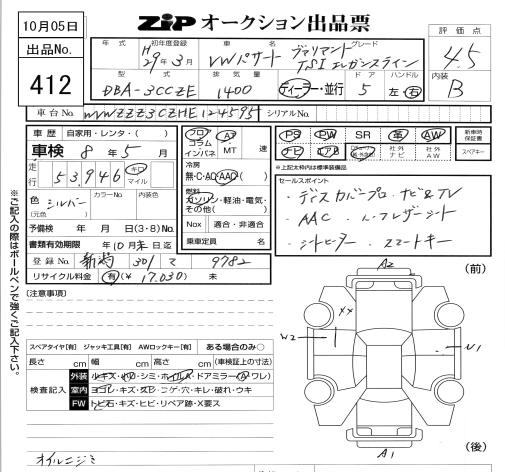 10月05日
出品No.
412
ZiP オークション出品票
評価点
4.5
内装
B
年式 初年度登録 車名 グレード
H29年3月 VWパサート ヴァリアント TSI エレガンスライン
型式 排気量 ドア ハンドル
DBA-3CCZE 1400 ディーラー・並行 5 左・右
車台No. WVWZZZ3CZHE124595 シリアルNo.
車歴 自家用・レンタ・( )
車検 8年5月
走行 53,946 キロ マイル
色 シルバー
(元色 )
カラーNo. 内装色
予備検 年 月 日(3・8)No.
書類有効期限 年10月末日迄
登録No. 新潟 301 て 9782
リサイクル料金 有(¥17,030) 未
フロア コラム インパネ
AT MT 速
冷房
無・C・AC・AAC( )
燃料
ガソリン・軽油・電気・その他( )
Nox 適合・非適合
乗車定員 名
PS PW SR 革 AW
ナビ エアB 社外ナビ 社外AW
新車時保証書
スペアキー
※上記太枠内は標準装備品
セールスポイント
・ディスカバープロ・ナビ&TV
・AAC ・レザーシート
・シートヒーター ・スマートキー
※ご記入の際はボールペンで強くご記入下さい。
(注意事項)
スペアタイヤ[有] ジャッキ工具[有] AWロックキー[有] ある場合のみ○
長さ cm 幅 cm 高さ cm (車検証上の寸法)
検査記入
外装 ルキズ・ドアミラー( ワレ)
室内 ヨゴレ・キズ・スレ・コゲ・穴・キレ・破れ・ウキ
FW トビ石・キズ・ヒビ・リペア跡・X要ス
オイルニジミ
(前)
A2
XX
W2
U1
A1
(後)